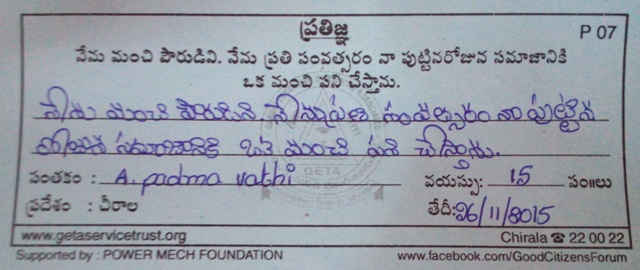 ప్రతిజ్ఞ
P 07
నేను మంచి పౌరుడిని. నేను ప్రతి సంవత్సరం నా పుట్టినరోజున సమాజానికి
ఒక మంచి పని చేస్తాను.
నేను మంచి పౌరుడిని. నేను ప్రతి సంవత్సరం నా పుట్టిన
రోజున సమాజానికి ఒక మంచి పని చేస్తాను.
GETA
సంతకం : A. padma vathi వయస్సు: 15 సం॥లు
ప్రదేశం : చీరాల తేదీ: 26/11/2015
www.getaservicetrust.org Chirala ☎ 22 00 22
Supported by : POWER MECH FOUNDATION www.facebook.com/GoodCitizensForum